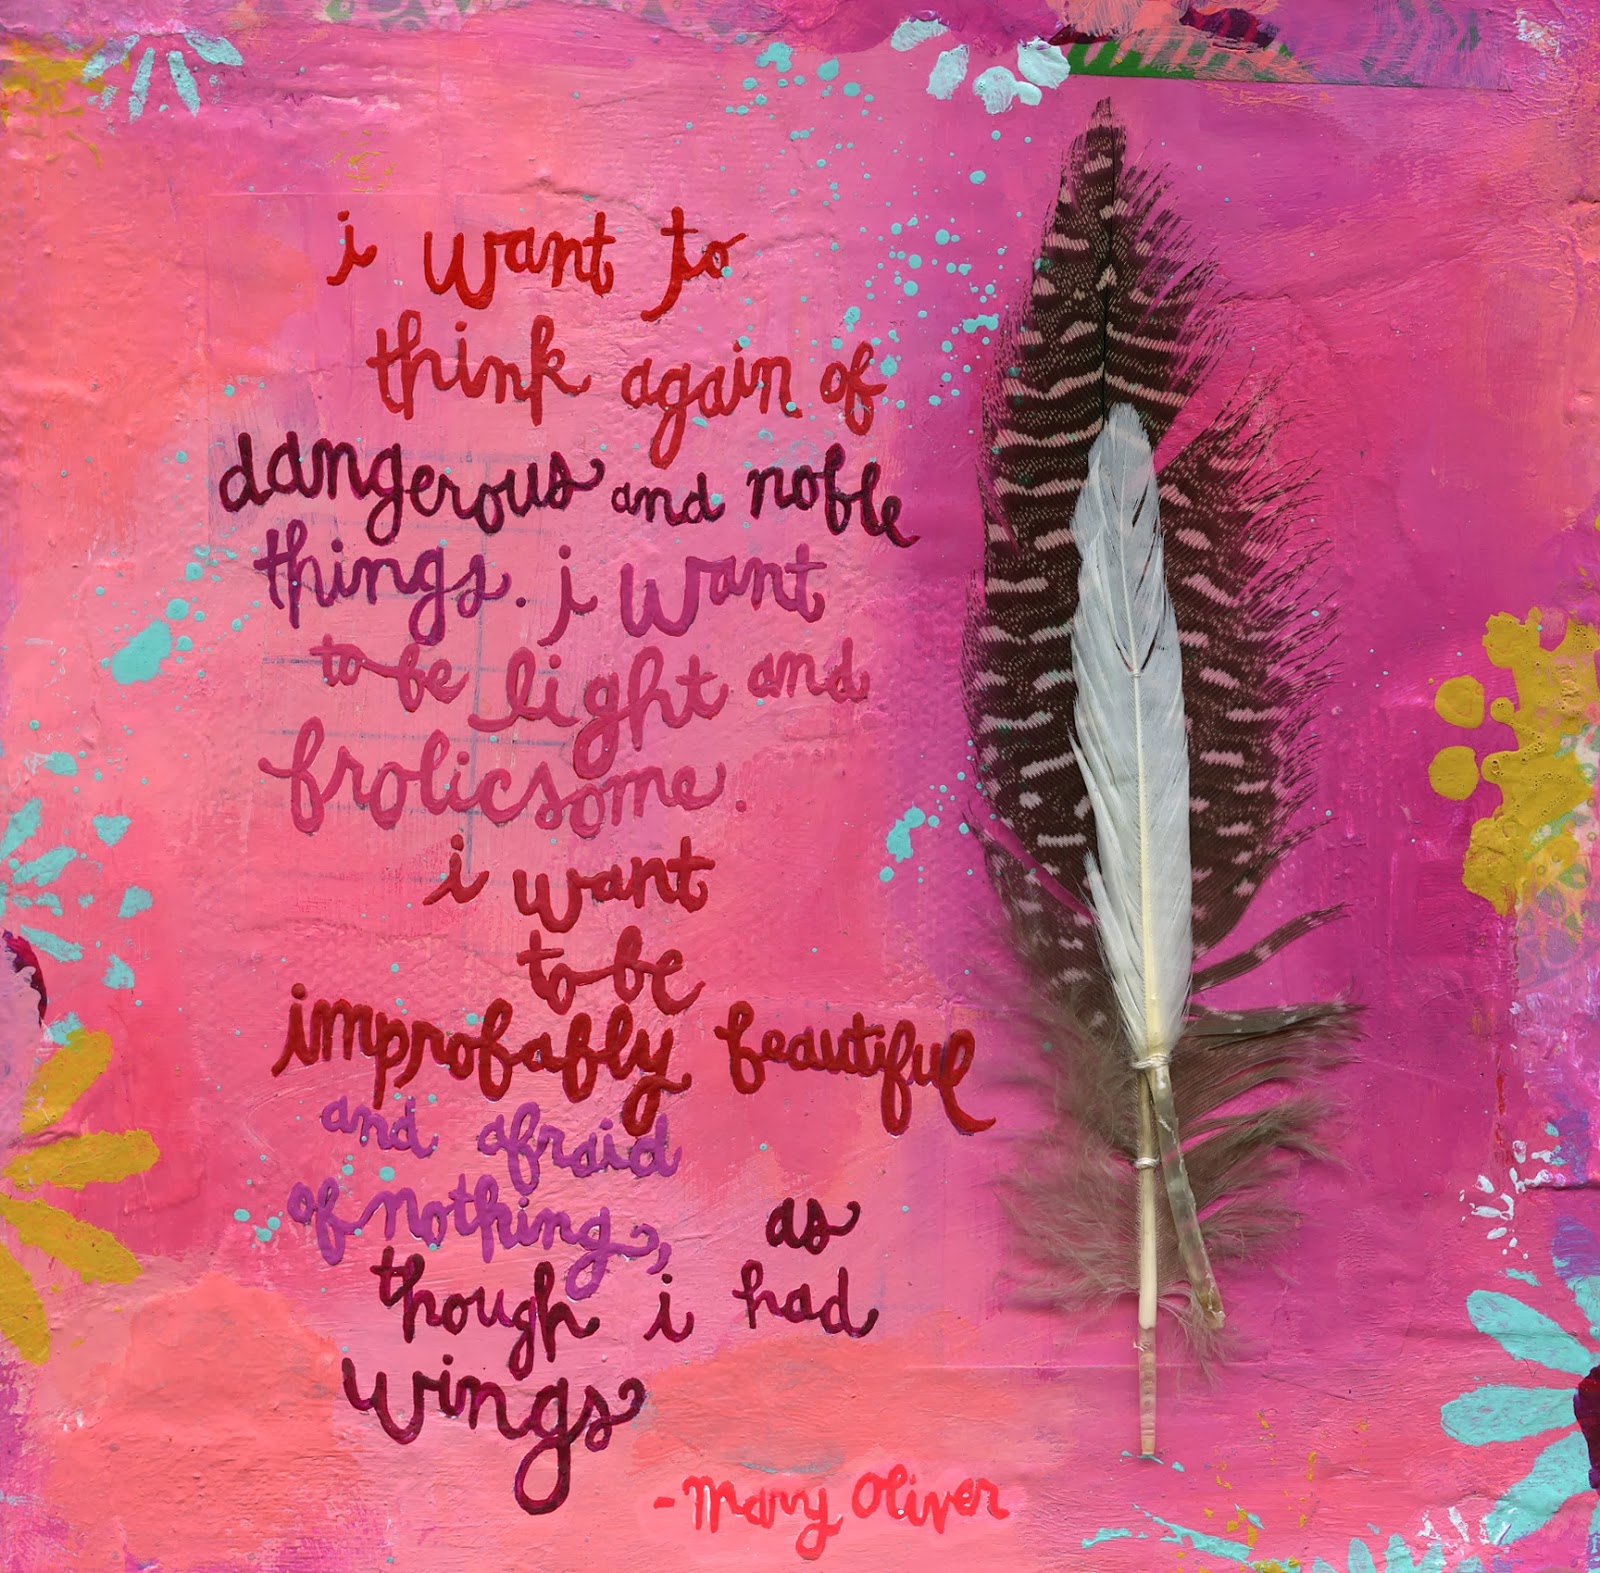 i want to
think again of
dangerous and noble
things. i want
to be light and
frolicsome.
i want
to be
improbably beautiful
and afraid
of nothing, as
though i had
wings
- Mary Oliver